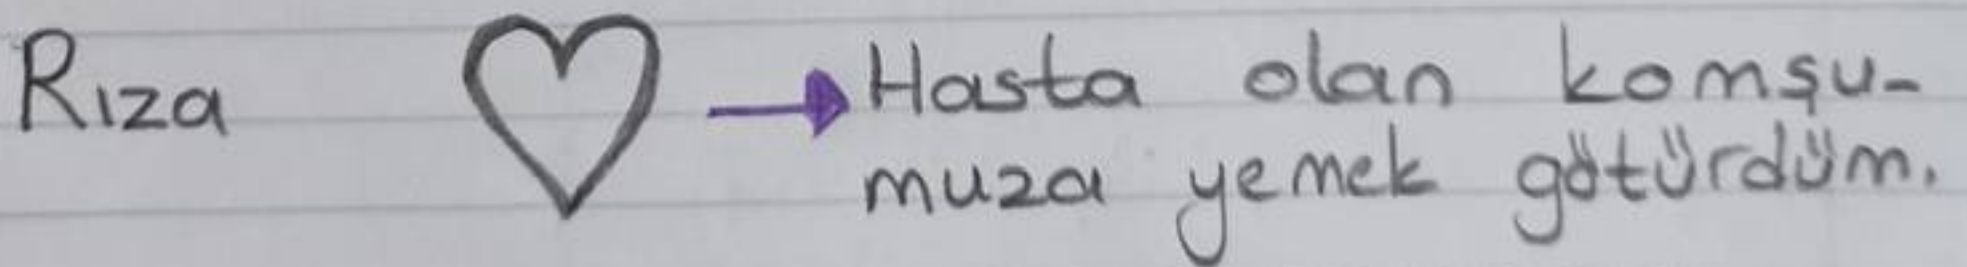 Rıza Hasta olan komşu-
muza yemek götürdüm.